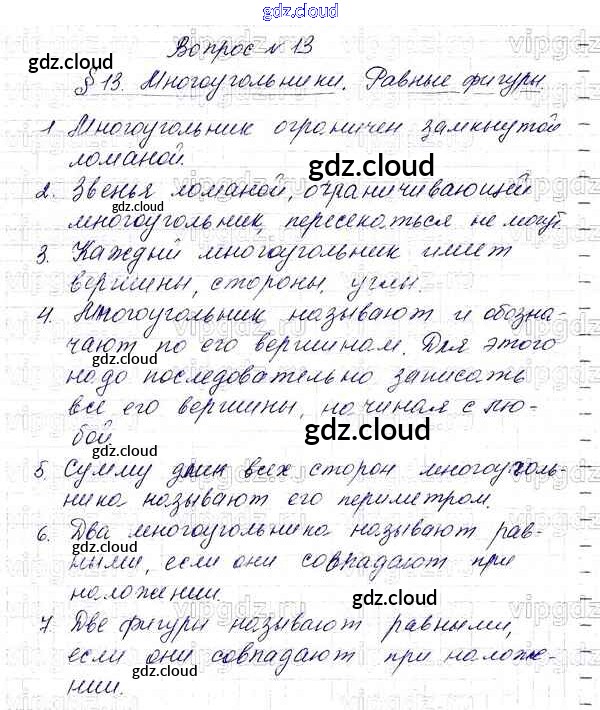 gdz.cloud
Вопрос №13
gdz.cloud
§ 13. Многоугольники. Равные фигуры.
1. Многоугольник ограничен замкнутой
ломаной.
gdz.cloud
2. Звенья ломаной, ограничивающей
gdz.cloud
многоугольник, пересекаться не могут
3. Каждый многоугольник имеет
вершины, стороны, углы.
4. Многоугольник называют и обозна-
чают по его вершинам. Для этого
gdz.cloud
надо последовательно записать
все его вершины, начиная с лю-
бой.
gdz.cloud
5. Сумму длин всех сторон многоуголь-
ника называют его периметром.
6. Два многоугольника называют рав-
gdz.cloud
ными, если они совпадают при
наложении.
gdz.cloud
7. Две фигуры называют равными,
если они совпадают при наложе-
gdz.cloud
нии.